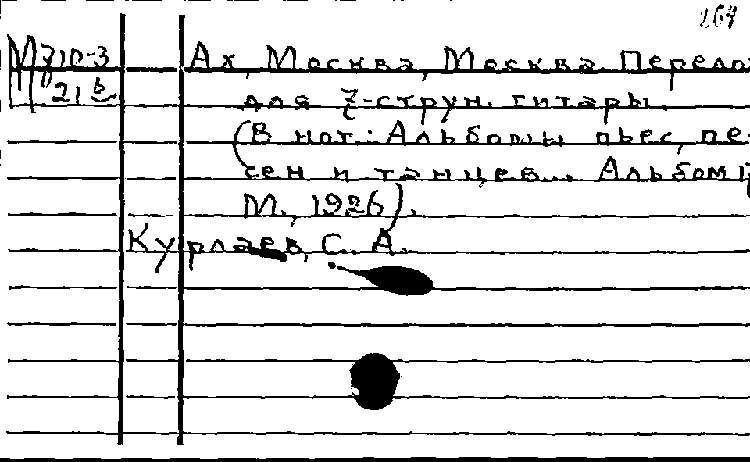 264
М 310-3 Ах, Москва, Москва. Перело
21 в для 7-струн. гитары.
(В нот.: Альбомы пьес, пе-
сен и танцев... Альбом
М., 1926).
Курлаев, С. А.